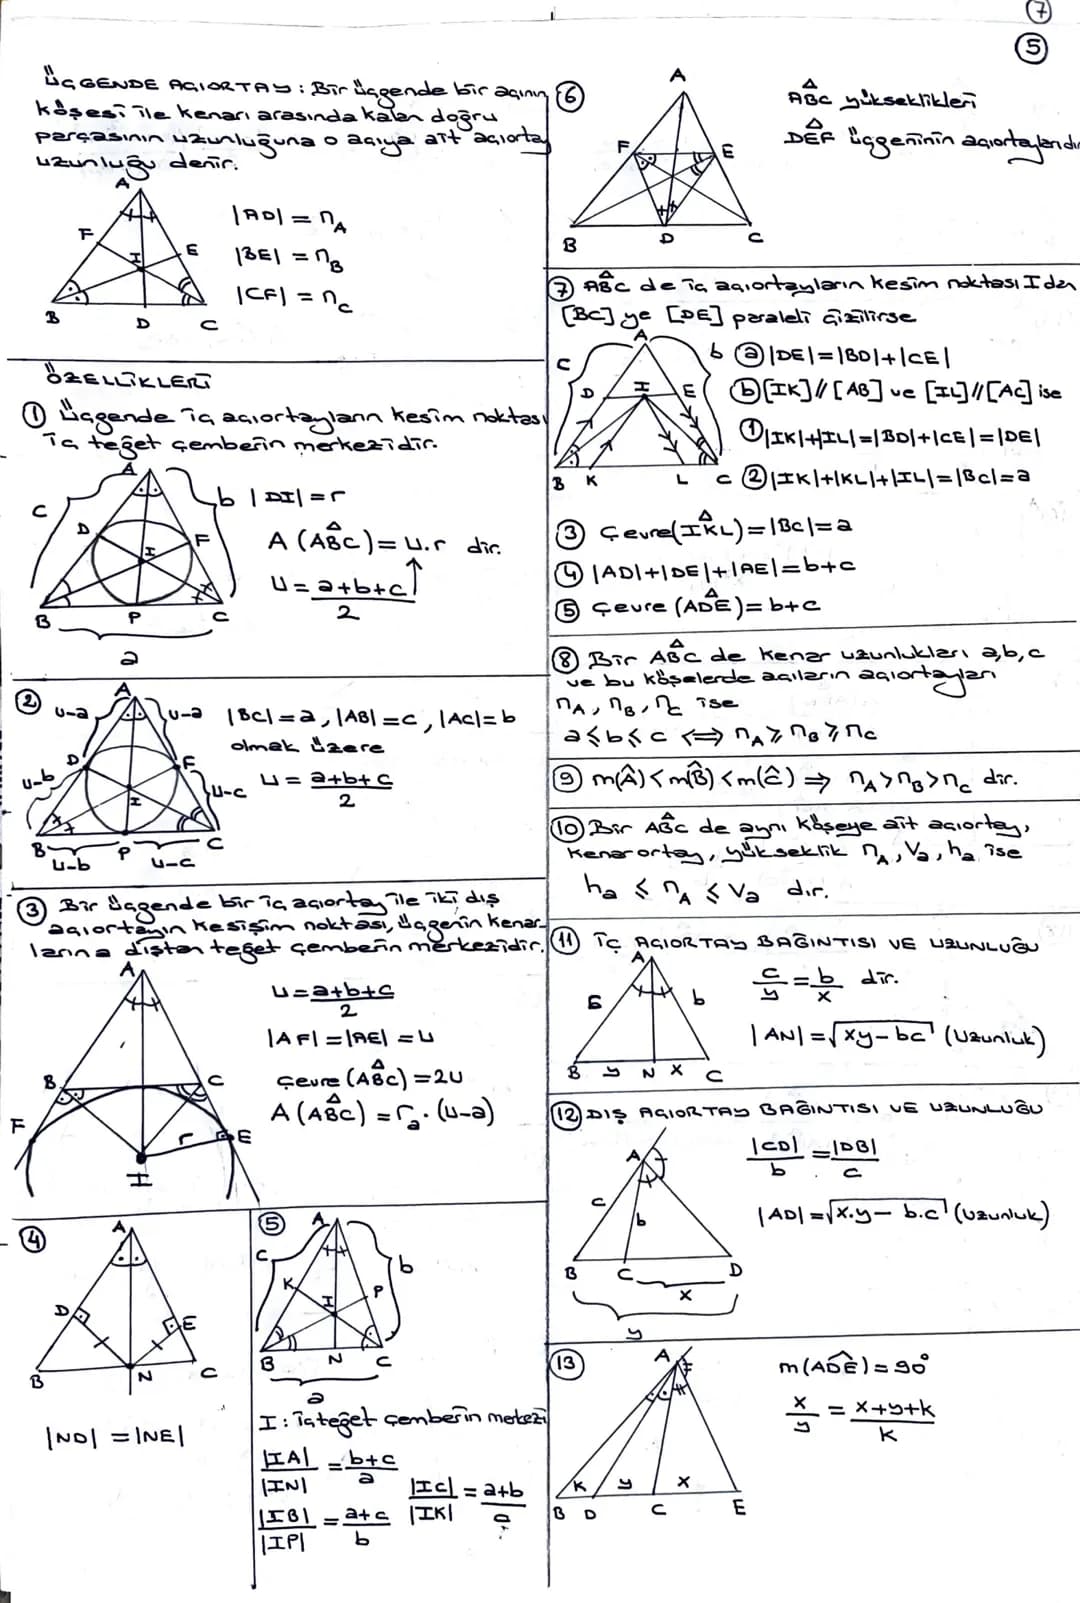 7
5
ÜÇGENDE AÇIORTAY : Bir üçgende bir açının
köşesi ile kenarı arasında kalan doğru
parçasının uzunluğuna o açıya ait açıortay
uzunluğu denir.
A
F
E
I
B
D
C
|AD| = nA
|BE| = nB
|CF| = nc
ÖZELLİKLERİ
① Üçgende iç açıortayların kesim noktası
iç teğet çemberin merkezidir.
A
c
b
D
F
I
B
P
C
a
|DI| = r
A(ABC) = u.r dir.
u = a+b+c / 2
②
A
u-a
u-a
D
F
u-b
u-c
I
B
P
C
u-b
u-c
|BC| = a, |AB| = c, |AC| = b
olmak üzere
u = a+b+c / 2
③ Bir üçgende bir iç açıortay ile iki dış
açıortayın kesişim noktası, üçgenin kenar-
larına dıştan teğet çemberin merkezidir.
A
B
C
F
r
E
I
u = a+b+c / 2
|AF| = |AE| = u
Çevre (ABC) = 2u
A(ABC) = ra.(u-a)
④
A
D
E
B
N
C
|ND| = |NE|
⑤
A
c
b
K
P
I
B
N
C
a
I : iç teğet çemberin merkezi
|IA| / |IN| = b+c / a
|IB| / |IP| = a+c / b
|IC| / |IK| = a+b / c
⑥
A
F
E
B
D
C
ABC yükseklikleri
DEF üçgeninin açıortaylarıdır
⑦ ABC de iç açıortayların kesim noktası I dan
[BC] ye [DE] paraleli çizilirse
A
c
b
D
I
E
B
K
L
C
ⓐ |DE| = |BD| + |CE|
ⓑ [IK] // [AB] ve [IL] // [AC] ise
① |IK| + |IL| = |BD| + |CE| = |DE|
② |IK| + |KL| + |IL| = |BC| = a
③ Çevre(IKL) = |BC| = a
④ |AD| + |DE| + |AE| = b+c
⑤ Çevre (ADE) = b+c
⑧ Bir ABC de kenar uzunlukları a,b,c
ve bu köşelerde açıların açıortayları
nA, nB, nc ise
a ≤ b ≤ c ⟺ nA ≥ nB ≥ nc
⑨ m(Â) < m(B̂) < m(Ĉ) ⇒ nA > nB > nc dir.
⑩ Bir ABC de aynı köşeye ait açıortay,
kenarortay, yükseklik nA, Va, ha ise
ha ≤ nA ≤ Va dır.
⑪ İÇ AÇIORTAY BAĞINTISI VE UZUNLUĞU
A
b
B
y
N
x
C
c/y = b/x dir.
|AN| = √xy - bc (uzunluk)
⑫ DIŞ AÇIORTAY BAĞINTISI VE UZUNLUĞU
A
c
b
B
C
D
x
y
|CD| / b = |DB| / c
|AD| = √x.y - b.c (uzunluk)
⑬
A
K
y
x
B
D
C
E
m(ADE) = 90°
x/y = x+y+k / k